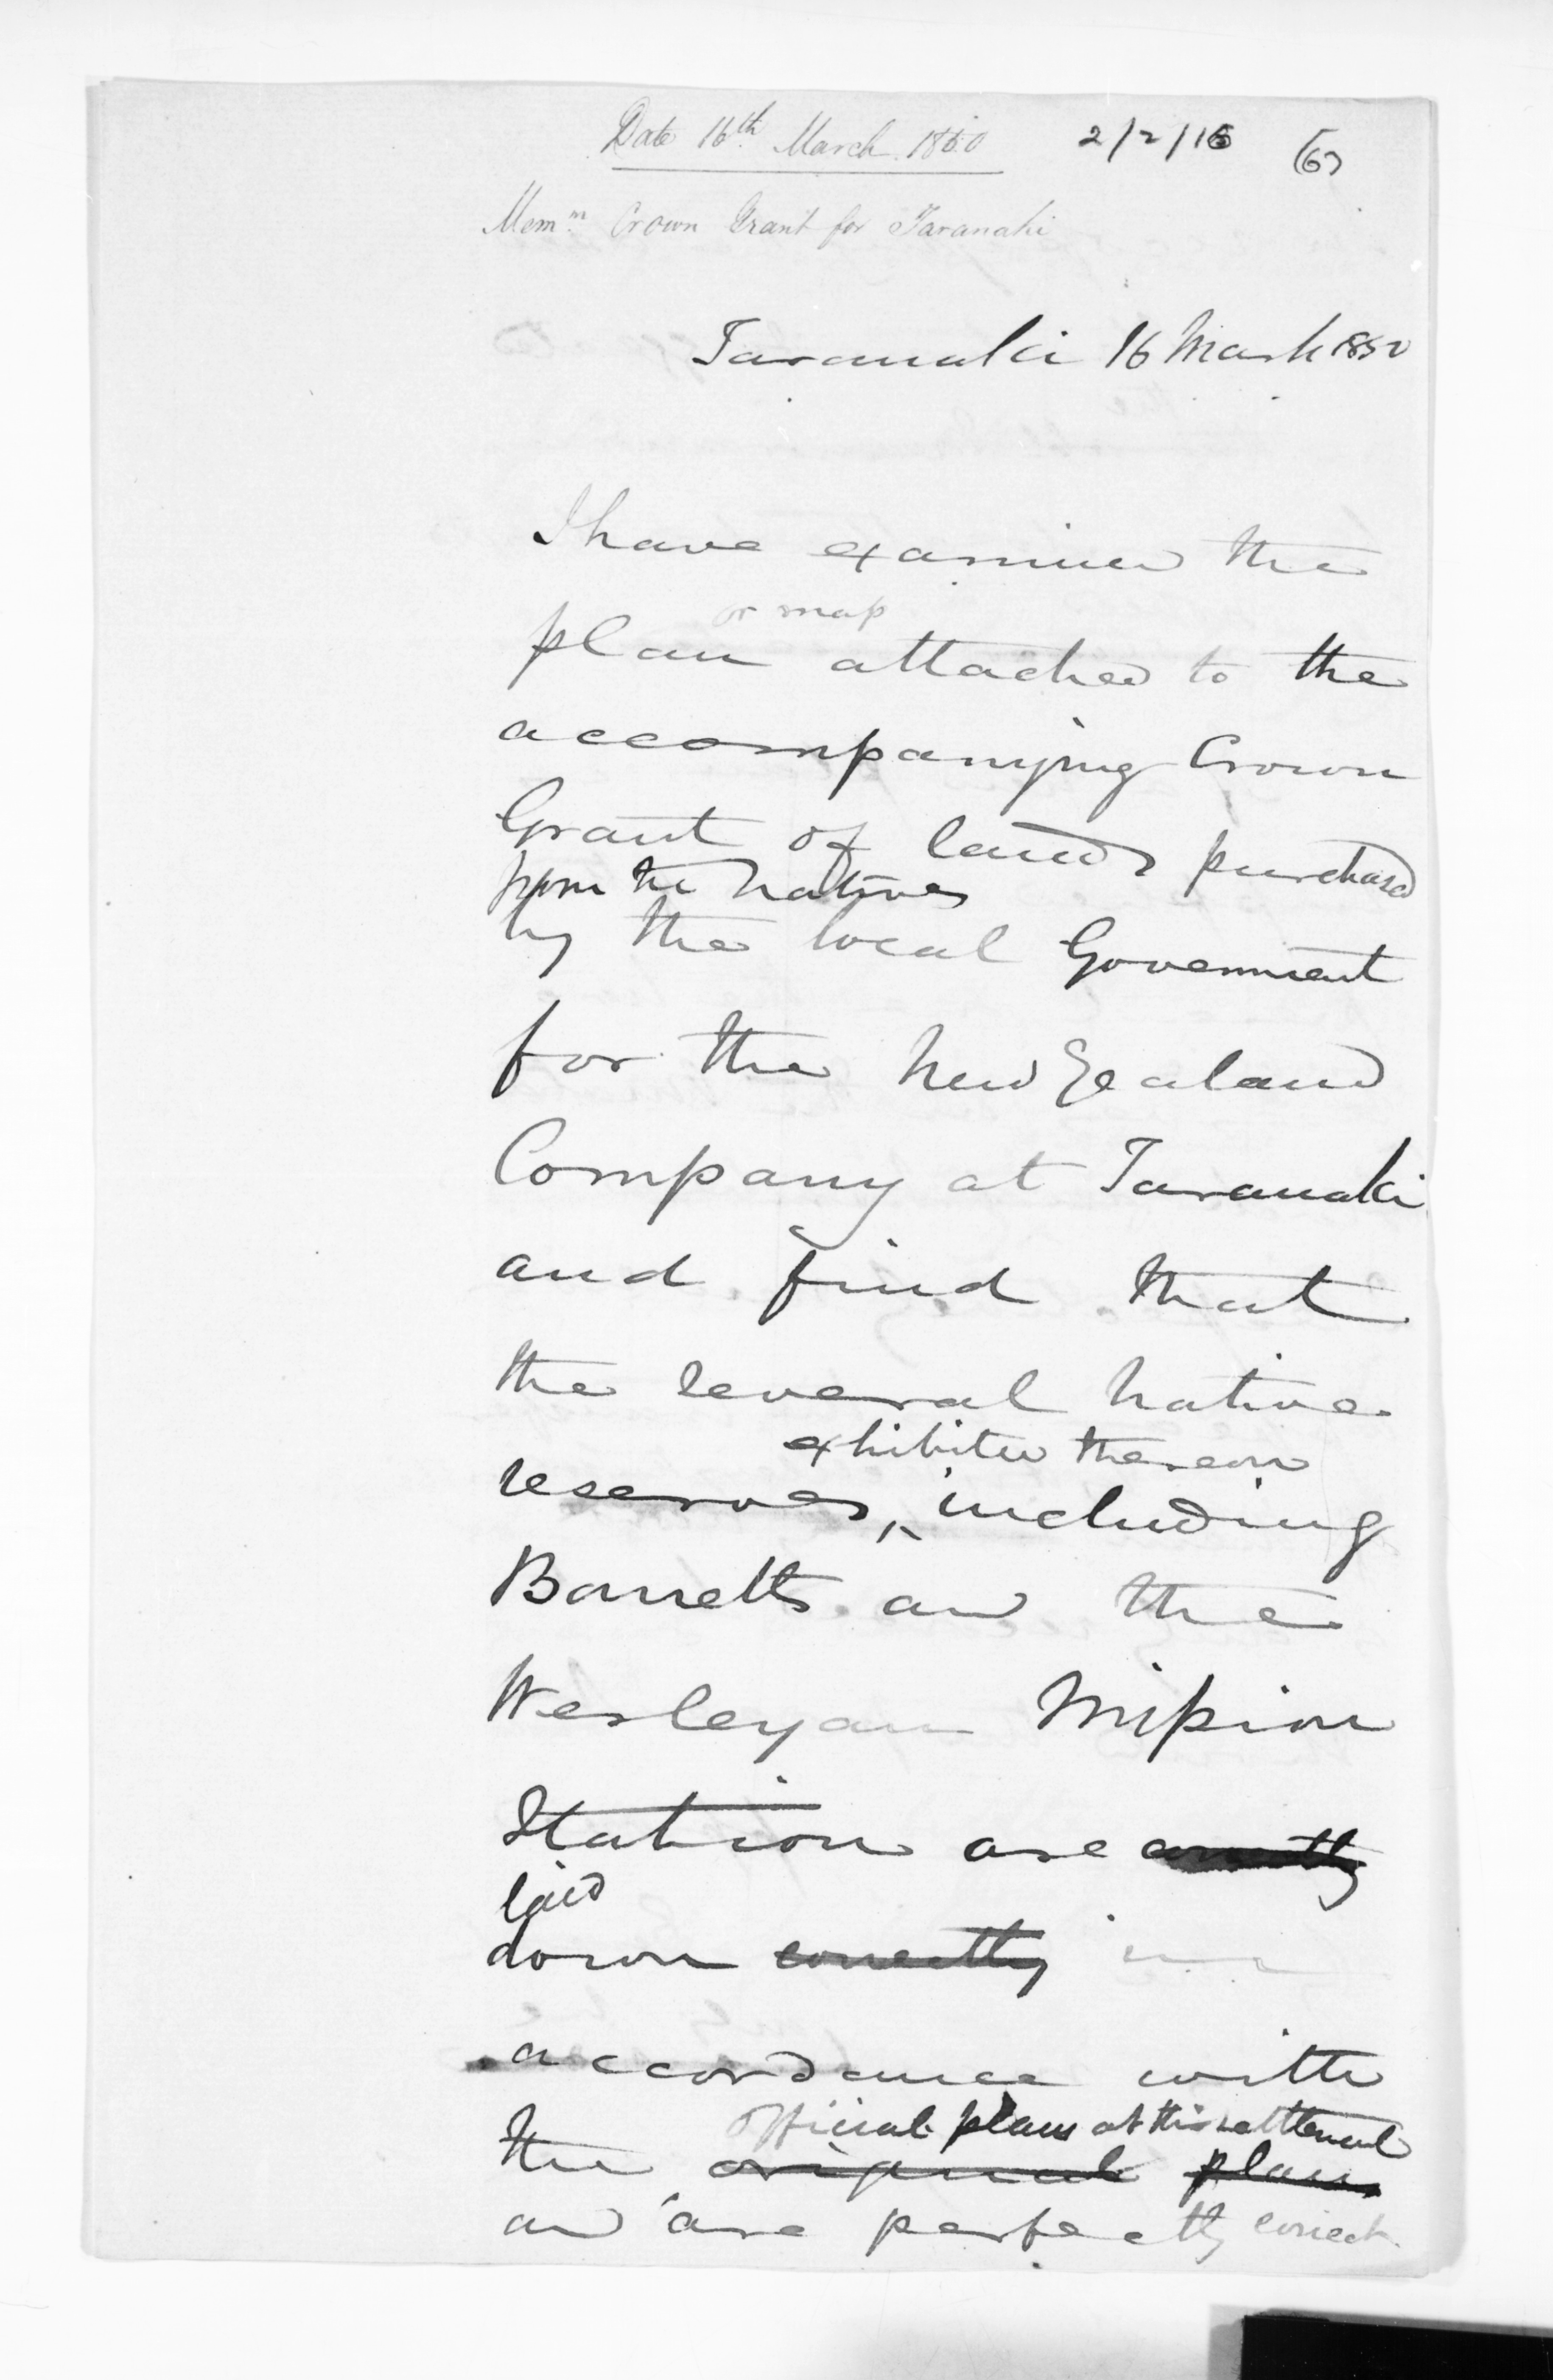 Date 16th March 1850 2/2/16 (6)
Memm. Crown Grant for Taranaki
Taranaki 16 March 1850
I have examined the
or map
plan attached to the
accompanying Crown
Grant of lands purchased
from the Natives
by the local Government
for the New Zealand
Company at Taranaki
and find that
the several Native
exhibited thereon
reserves, including
Barretts and the
Wesleyan Mission
Station are correctly
laid
down correctly in
accordance with
official plans at this settlement
the original plans
and are perfectly correct